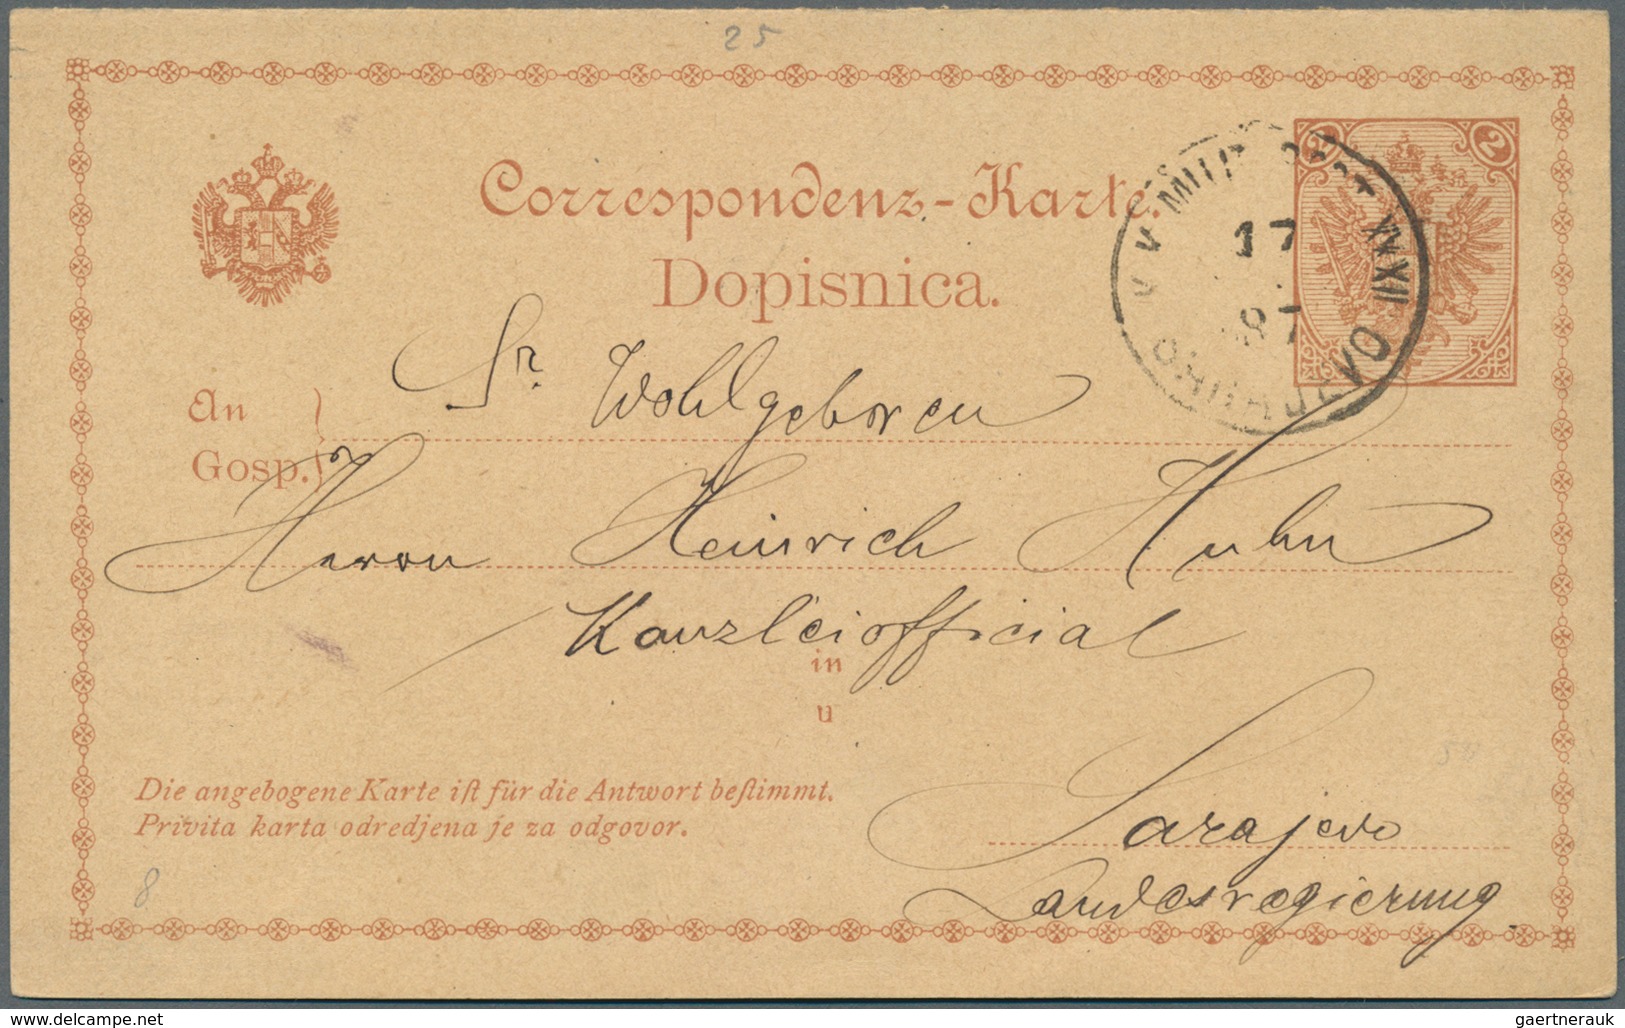 25
Correspondenz-Karte.
Dopisnica.
2 2
17
87
XII
Sr. Wohlgeboren
An
Gosp.
Herrn Heinrich Huhn
Kanzleiofficial
in
u
Die angebogene Karte iſt für die Antwort beſtimmt.
Privita karta odredjena je za odgovor.
Sarajevo
Landesregierung.
8
www.delcampe.net
gaertnerauk